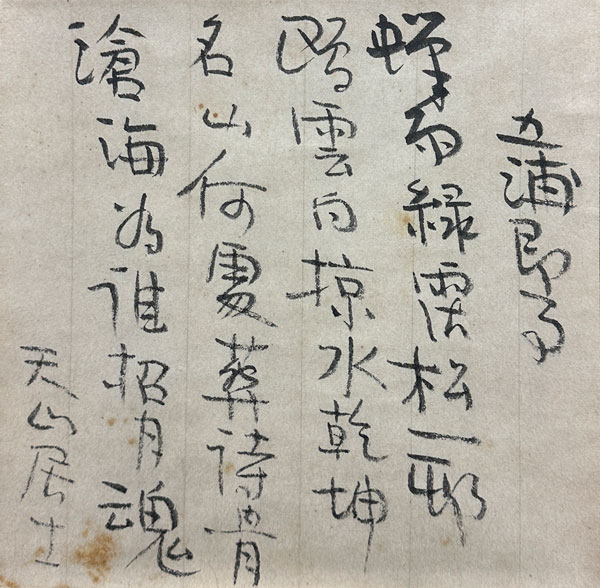 五浦即事
蝉雨緑霑松一邨
鷗雲白掠水乾坤
名山何處葬詩骨
滄海為誰招月魂
天心居士